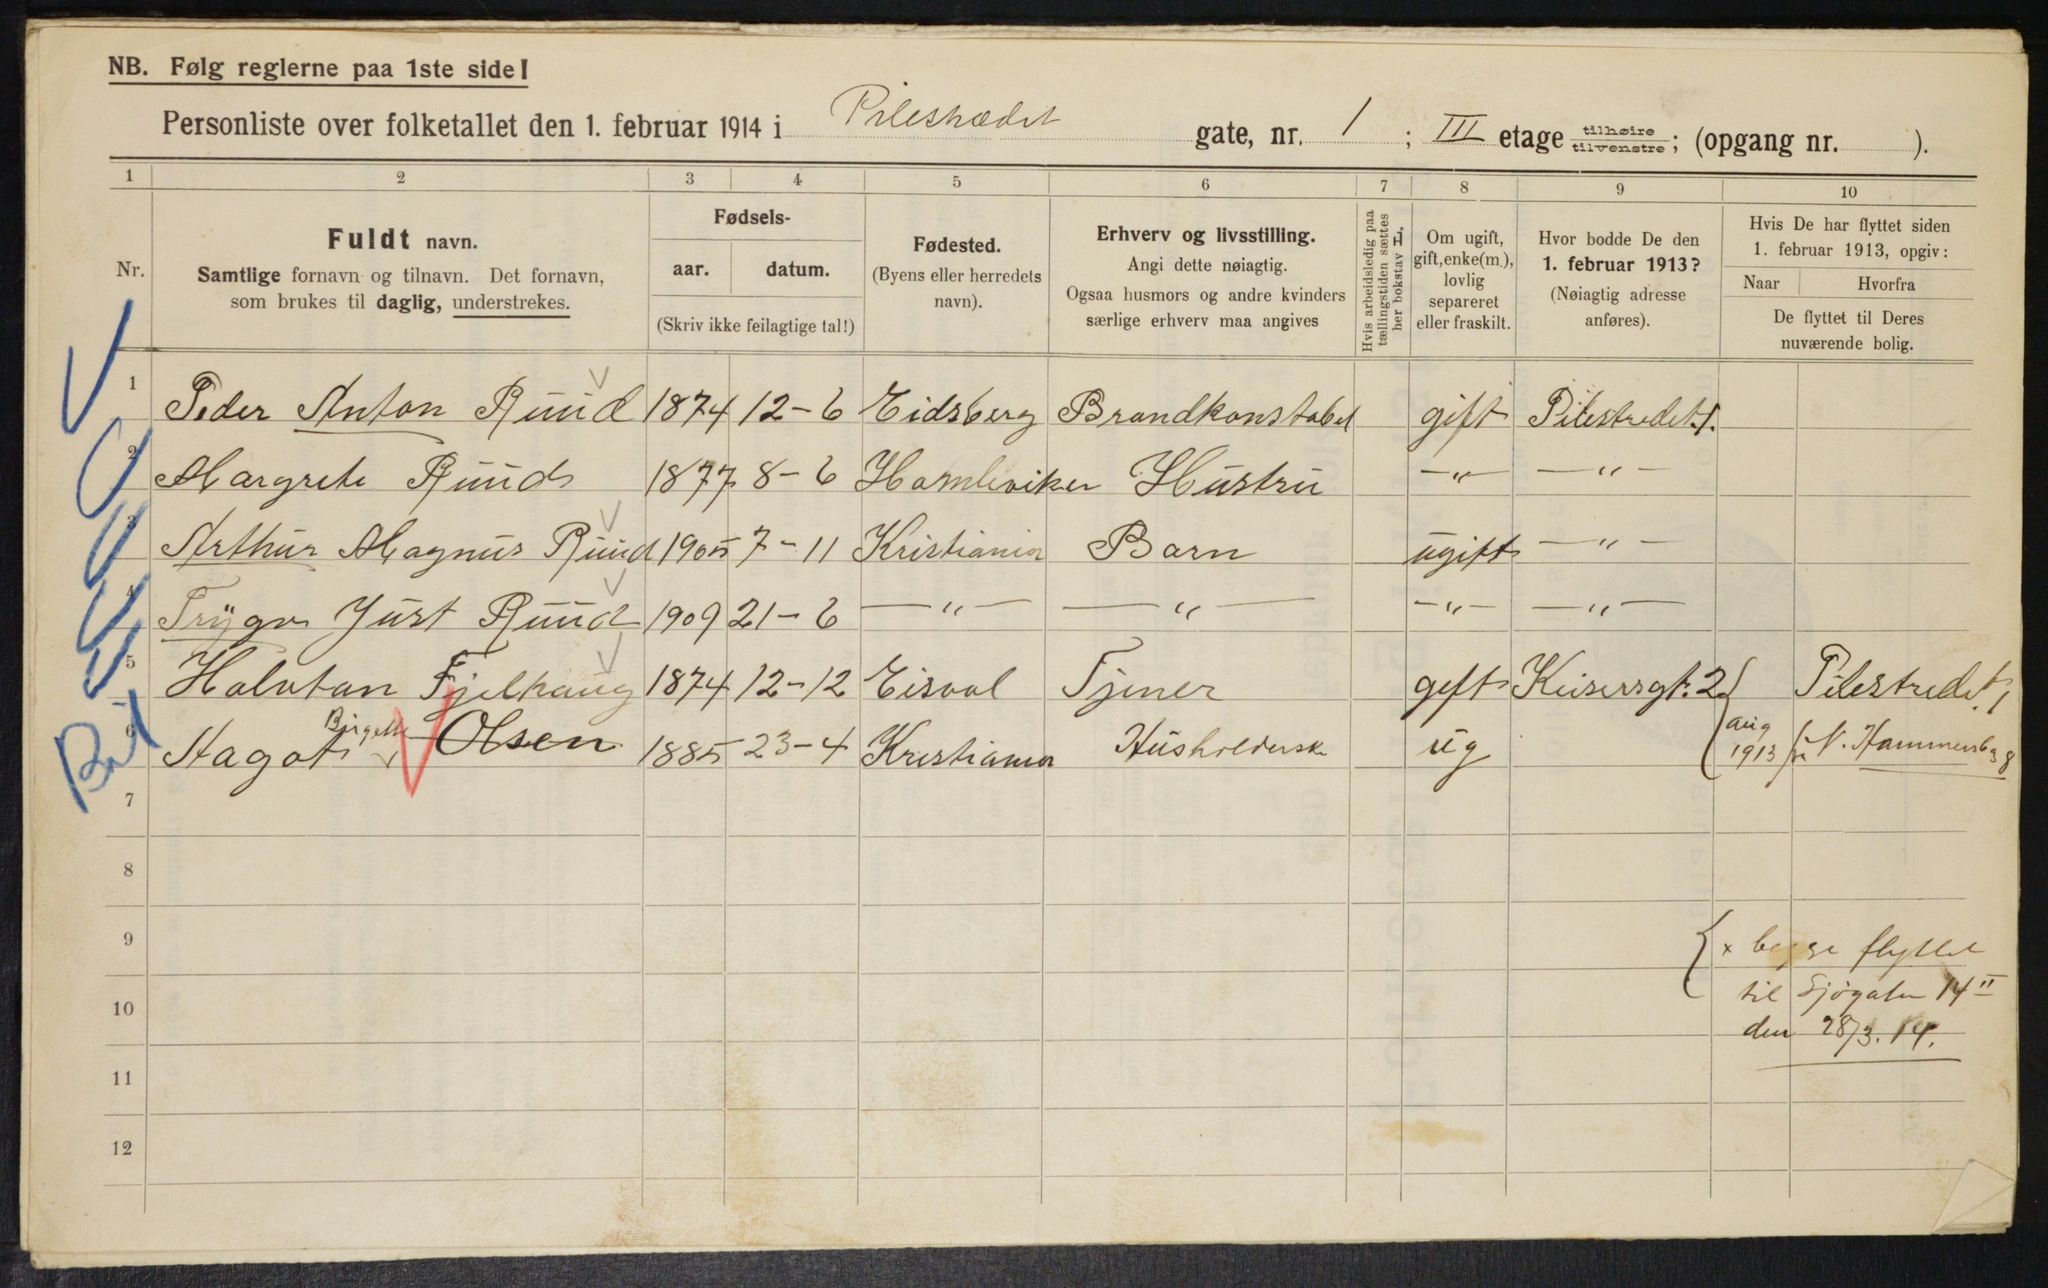 NB. Følg reglerne paa 1ste side!
Personliste over folketallet den 1. februar 1914 i Pilestrædet gate, nr. 1 ; III etage tilhøire tilvenstre; (opgang nr. ).
1 2 3 4 5 6 7 8 9 10
Nr.
Fuldt navn.
Samtlige fornavn og tilnavn. Det fornavn,
som brukes til daglig, understrekes.
Fødsels-
aar. datum.
(Skriv ikke feilagtige tal!)
Fødested.
(Byens eller herredets
navn).
Erhverv og livsstilling.
Angi dette nøiagtig.
Ogsaa husmors og andre kvinders
særlige erhverv maa angives
Hvis arbeidsledig paa
tællingstiden sættes
her bokstav H.
Om ugift,
gift, enke(m.),
lovlig
separeret
eller fraskilt.
Hvor bodde De den
1. februar 1913?
(Nøiagtig adresse
anføres).
Hvis De har flyttet siden
1. februar 1913, opgiv:
Naar Hvorfra
De flyttet til Deres
nuværende bolig.
1 Peder Anton Ruud 1874 12-6 Eidsberg Brandkonstabel gift Pilestredet 1.
2 Margrete Ruud 1877 8-6 Hustru —"— —"—
3 Arthur Magnus Ruud 1905 7-11 Kristiania Barn ugift —"—
4 Trygve Just Ruud 1909 21-6 —"— —"— —"— —"—
5 Halvtan Fjelhaug 1874 12-12 Eisvol Tjener gift Keisersgt. 2 Pilestredet 1
6 Hagot Birgette Olsen 1885 23-4 Kristiania Husholderske ug aug 1913 N. Hammersb 8
7
8
9
10
11
12
x begge flyttet
til Sjøgaten 14 II
den 28/3. 14.